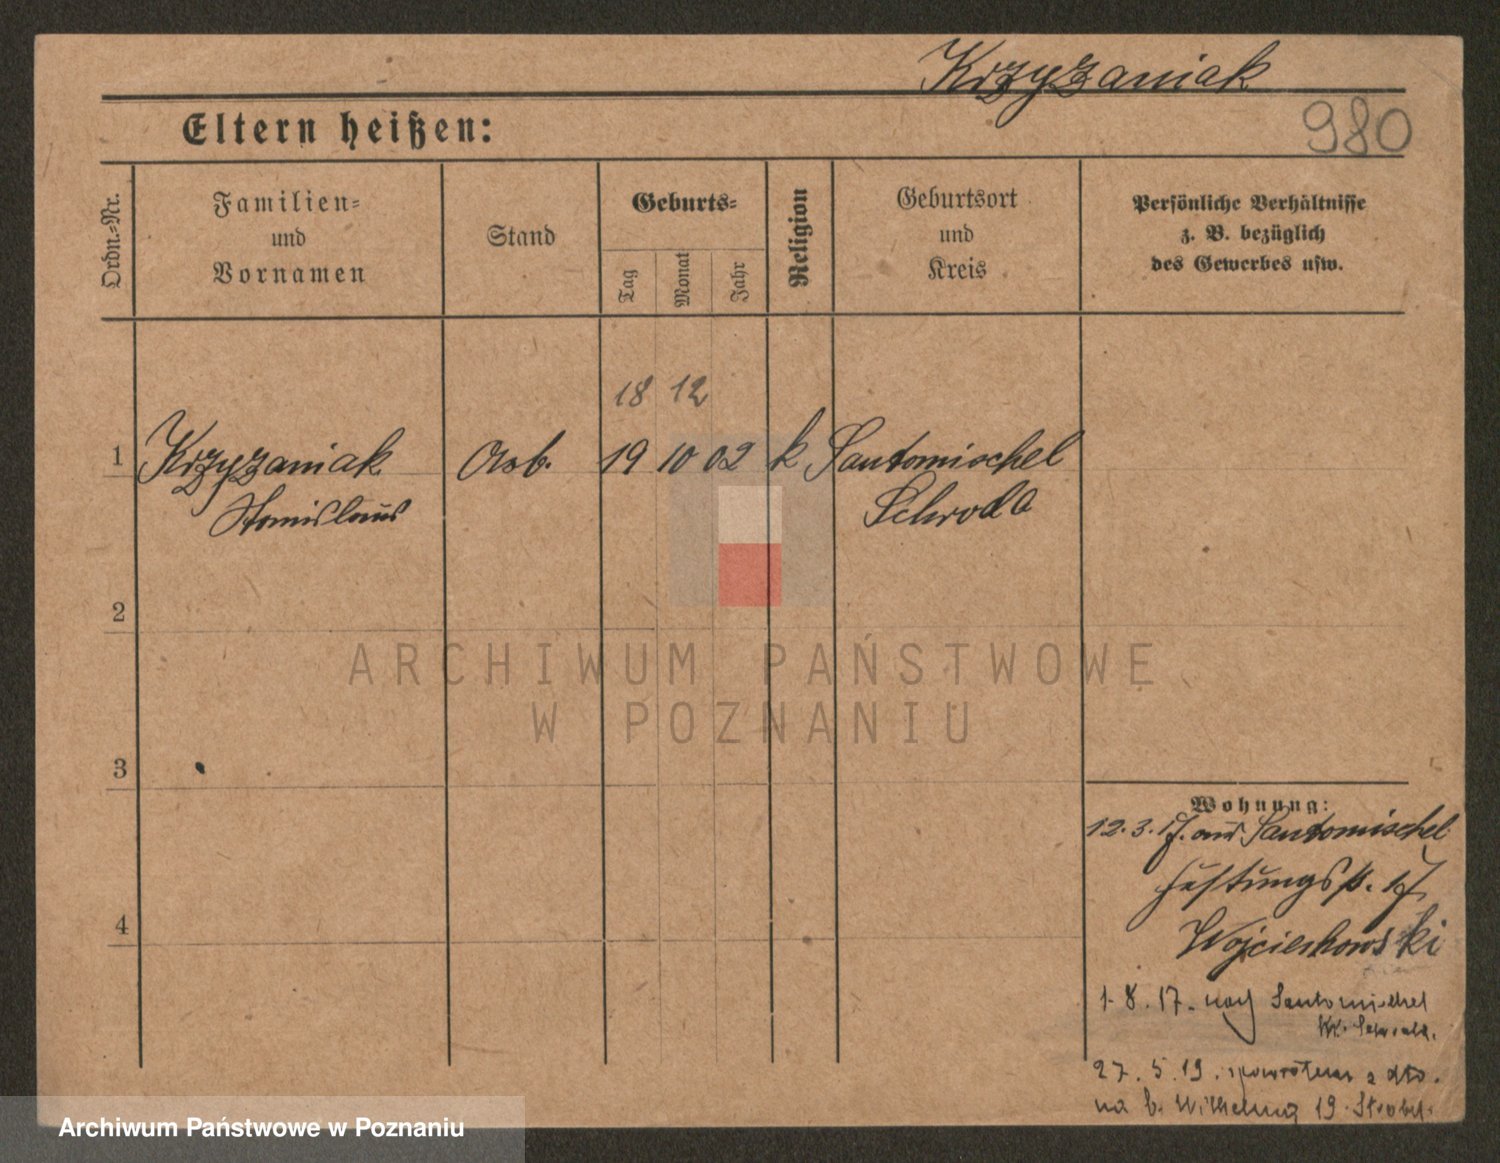 Krzyzaniak
980
Eltern heißen:
Ordn.-Nr.
Familien-
und
Vornamen
Stand
Geburts-
Tag
Monat
Jahr
Religion
Geburtsort
und
Kreis
Persönliche Verhältnisse
z. B. bezüglich
des Gewerbes usw.
18 12
1 Krzyzaniak Arb. 19 10 02 k Santomischel
Stanislaus Schroda
2
3
4
Wohnung:
12.3.17. aus Santomischel
Festungsstr. 17
Wojciechowski
1.8.17. nach Santomischel
Kr. Schroda.
27.5.19. spowrotem z dto.
na b. Wilhelma 19. Strobel.
ARCHIWUM PAŃSTWOWE
W POZNANIU
Archiwum Państwowe w Poznaniu